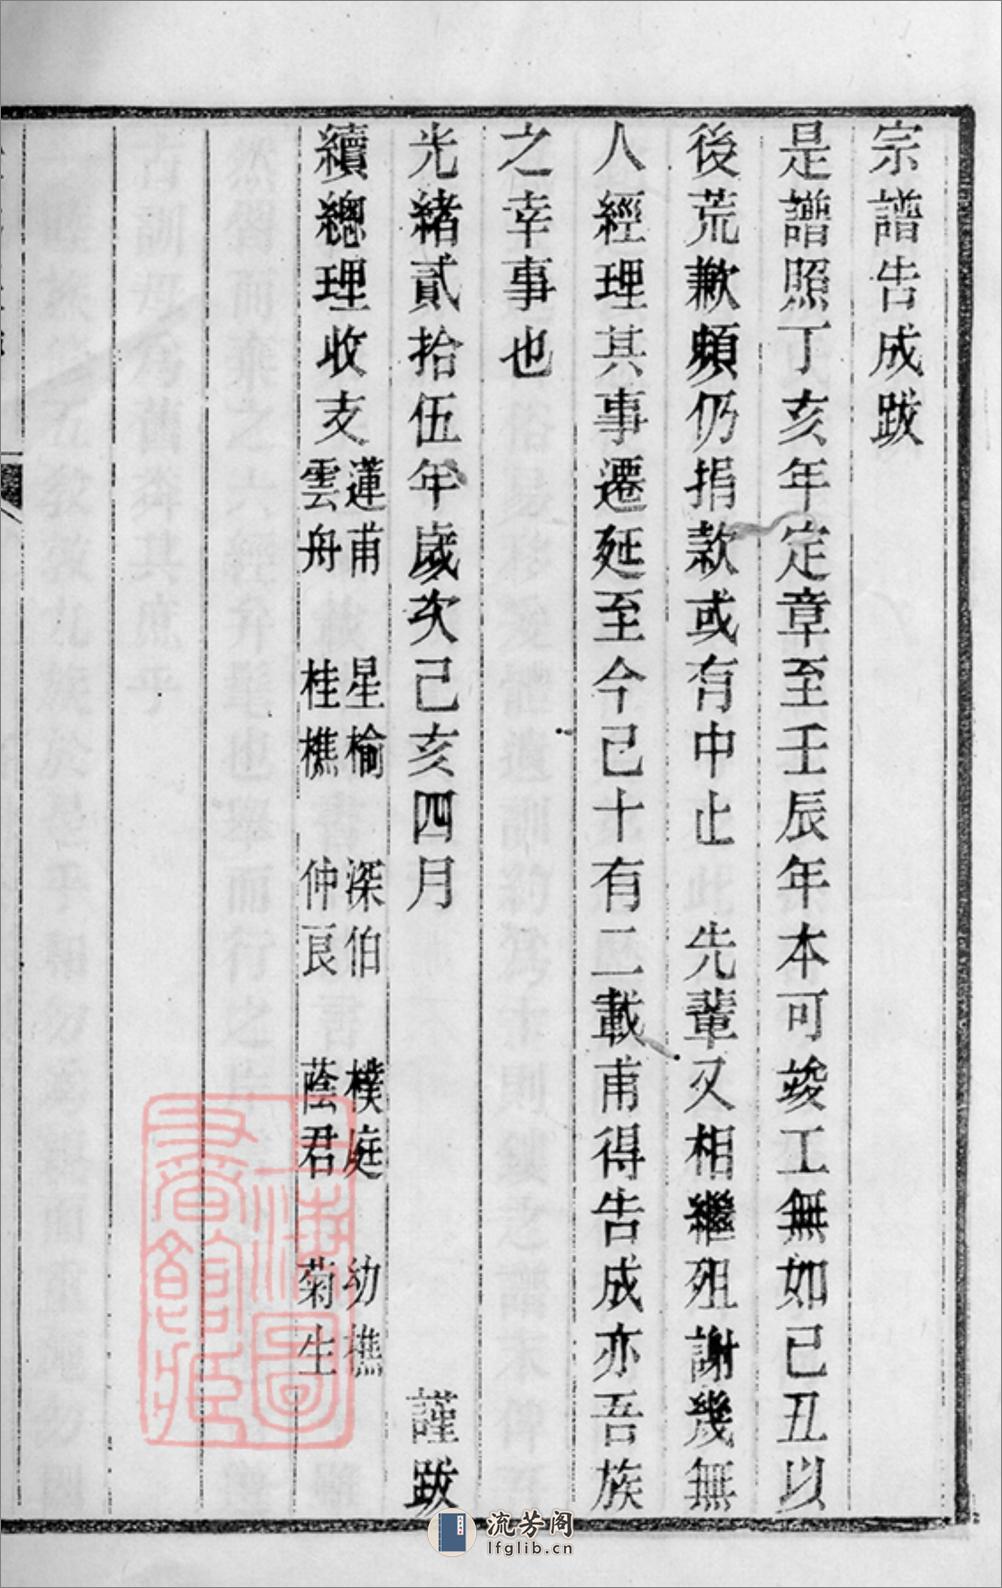 宗譜告成跋
是譜照丁亥年定章至壬辰年本可竣工無如己丑以
後荒歉頻仍捐款或有中止　先輩又相繼殂謝幾無
人經理其事遷延至今已十有二載甫得告成亦吾族
之幸事也
光緒貳拾伍年歲次己亥四月　謹跋
續總理收支
蓮甫　星榆　深伯　樸庭　幼樵
雲舟　桂樵　仲良　蔭君　菊生
上海圖
書館藏
流芳阁
lfglib.cn